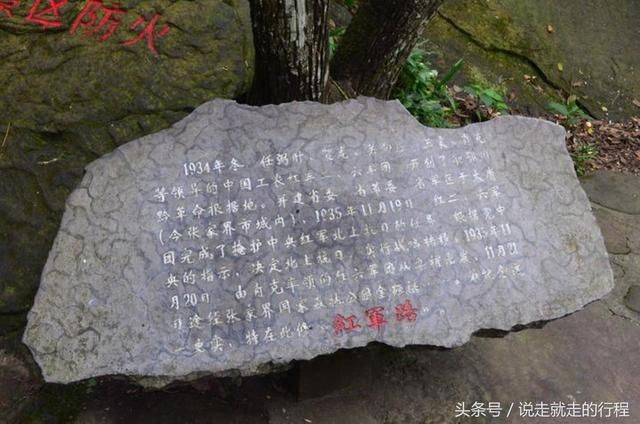 景区防火
1934年冬 任弼时、贺龙、关向应
等领导的中国工农红军二、六军团 开创了湘鄂川
黔革命根据地。并建省委、省革委、省军区于大庸
(今张家界市城内)，1935年11月19日 红二、六军
团完成了掩护中央红军北上抗日的任务，根据党中
央的指示，决定北上抗日，实行战略转移。1935年11
月20日 由 克 率领的红六军团从 11月21
日途经张家界国家森林公园金鞭溪
一史实，特在此修
紅軍路
知乎 @说走就走的行程